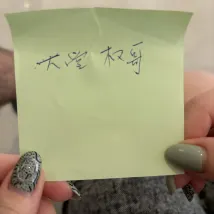 大堂 权哥